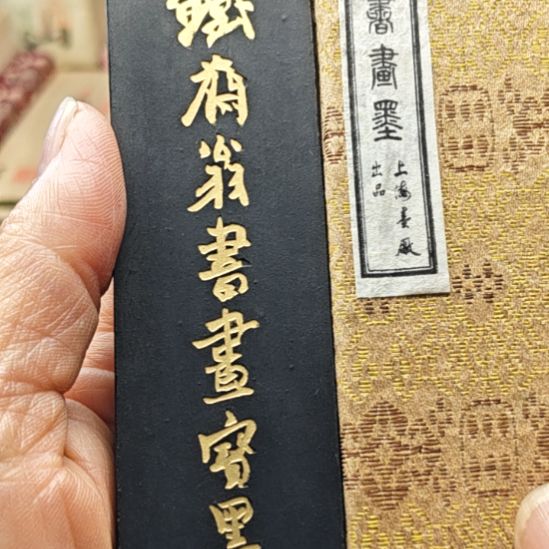 鐵齋翁書畫寶墨
書畫墨
上海墨厰
出品